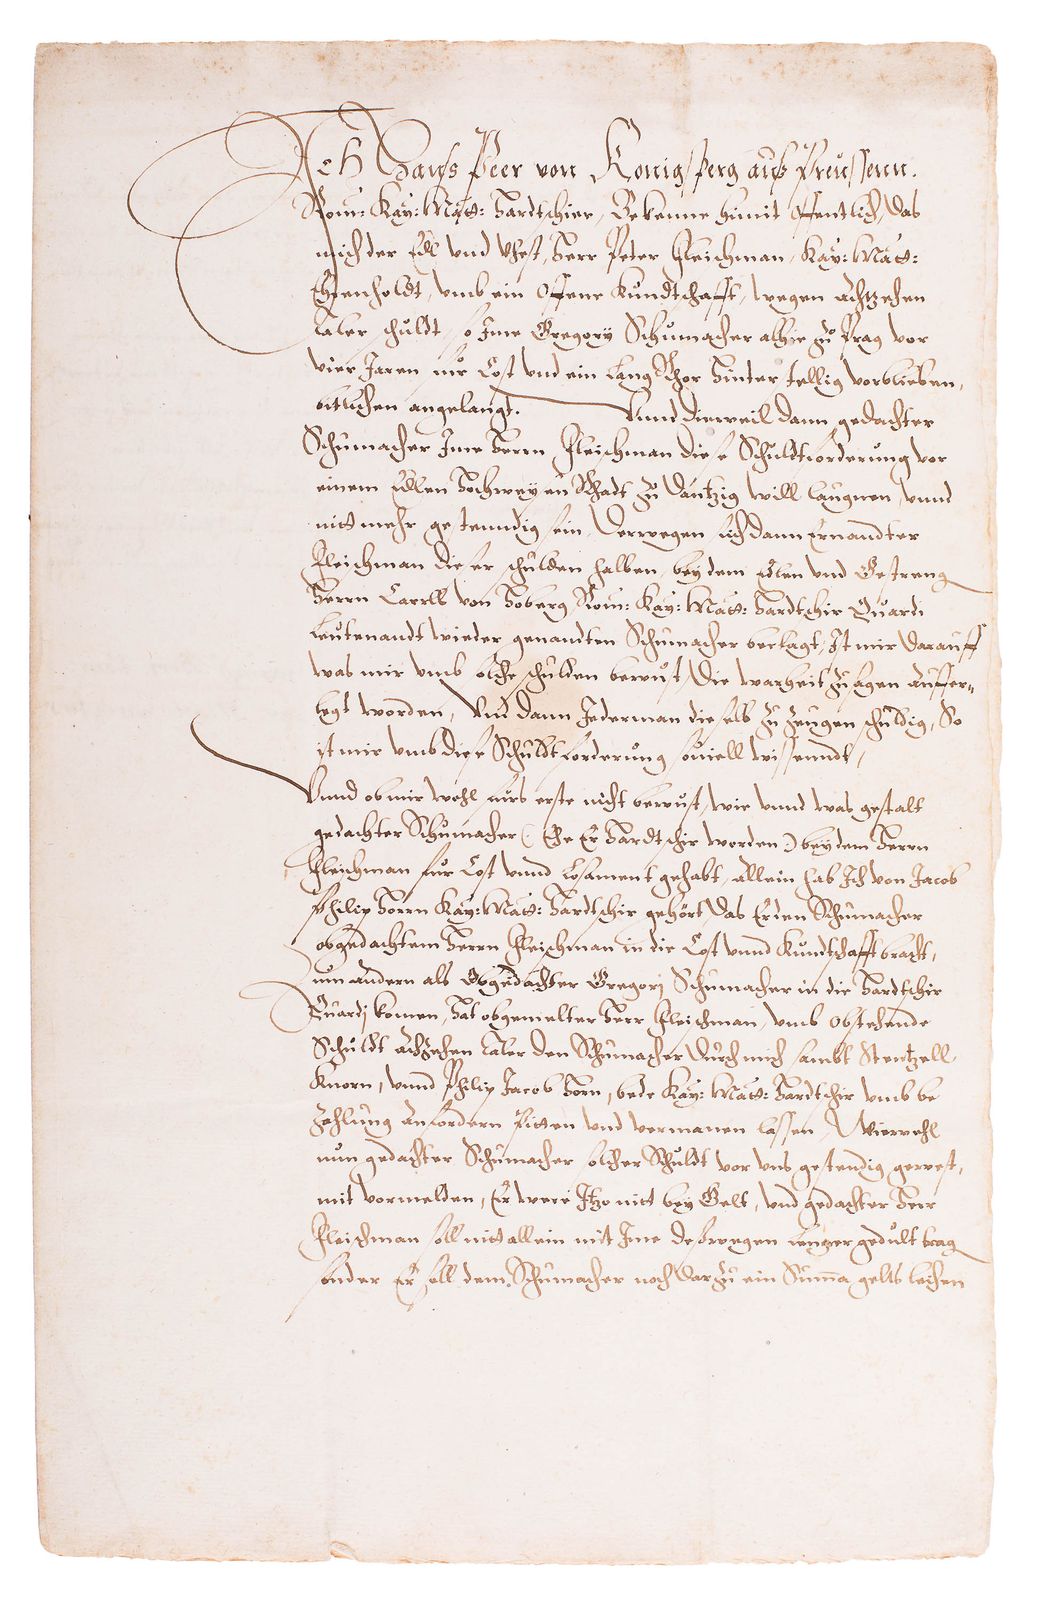 Ich Hanss Peer von Konigsperg auss Preussenn.
Rom: Kay: Matt: Hardtschier, Bekenne himit offentlich, das
mich der Edl und Vhest, Herr Peter Fleischman, Kay: Matt:
Ehrenholdt, umb ein offene Kundtschafft, wegen achtzehen
taler schuldt, so Ime Gregory Schumacher alhie zu Prag vor
vier Jaren nür Cost und ein lang Rhor hinterstellig vorblieben,
bitlichen angelangt. Unnd dieweil dann gedachter
Schumacher Ime Herrn Fleischman diese Schuldtforderung vor
einem Edlen Hochweysen Rhadt zu Dantzig will laugnen, unnd
nitt mehr gestenndig sein, Derwegen sich dann ernandter
Fleischman dieser schulden halben, bey dem Edlen und Gestreng
Herrn Carrll von Hoberg Rom: Kay: Matt: Hardtschir Quardi
Leutenandt wieder genandten Schumacher beclagt, Ist mir darauff
was mir umb solche schulden bewust, die warheit zu sagen aufferˮ
legt worden, Und dann Jederman dieselb zu zeugen schuldig, So
ist mir umb diese Schuldtforderung souiell wissenndt,
Unnd ob mir wohl fürs erste nicht bewust, wie unnd was gestalt
gedachter Schumacher (: Ehe Er Hardtschir worden :) bey dem Herrn
Fleischman für Cost unnd Losament gehabt, allein hab Ich von Jacob
Philip Horrn Kay: Matt: Hardtschir gehört, das Er den Schumacher
obgedachtem Herrn Fleischman in die Cost unnd Kundtschafft bracht,
zum andern als obgedachter Gregorj Schumacher in die Hardtschir
Quardj komen, Hat obgemelter Herr Fleischman, umb obstehende
Schuldt achzehen taler den Schumacher durch mich sambt Stentzell
Knorn, unnd Philip Jacob Horn, bede Kay: Matt: Hardtschir umb be
zahlung anfordern bitten und vermanen lassen, Wiewohl
nun gedachter Schumacher solcher Schuldt vor uns gestendig gewest,
mit vormelden, Er were Itzo nitt bey Gelt, und gedachter Herr
Fleischman soll nitt allein mit Ime deswegen lenger gedult trag
sonder Er soll dem Schumacher noch darzu ein Suma gelts leihen